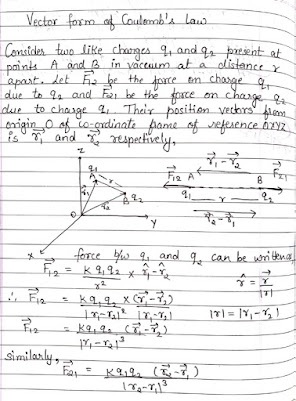 Vector form of Coulomb's Law
Consider two like charges q₁ and q₂ present at
points A and B in vaccum at a distance r
apart. Let F⃗₁₂ be the force on charge q₁
due to q₂ and F⃗₂₁ be the force on charge q₂
due to charge q₁. Their position vectors from
origin O of co-ordinate frame of reference OXYZ
is r⃗₁ and r⃗₂ respectively.
z
r⃗₁ - r⃗₂
q₁
A
r
F⃗₁₂ A B F⃗₂₁
B q₂
q₁ r q₂
r⃗₂ - r⃗₁
O
y
x
force b/w q₁ and q₂ can be written as
F⃗₁₂ = K q₁ q₂ / r² × r̂₁ - r̂₂
r̂ = r⃗ / |r|
∴ F⃗₁₂ = K q₁ q₂ × (r⃗₁ - r⃗₂) / |r₁ - r₂|² |r₁ - r₂|
|r| = |r₁ - r₂|
F⃗₁₂ = K q₁ q₂ (r⃗₁ - r⃗₂) / |r₁ - r₂|³
similarly,
F⃗₂₁ = K q₁ q₂ (r⃗₂ - r⃗₁) / |r₂ - r₁|³